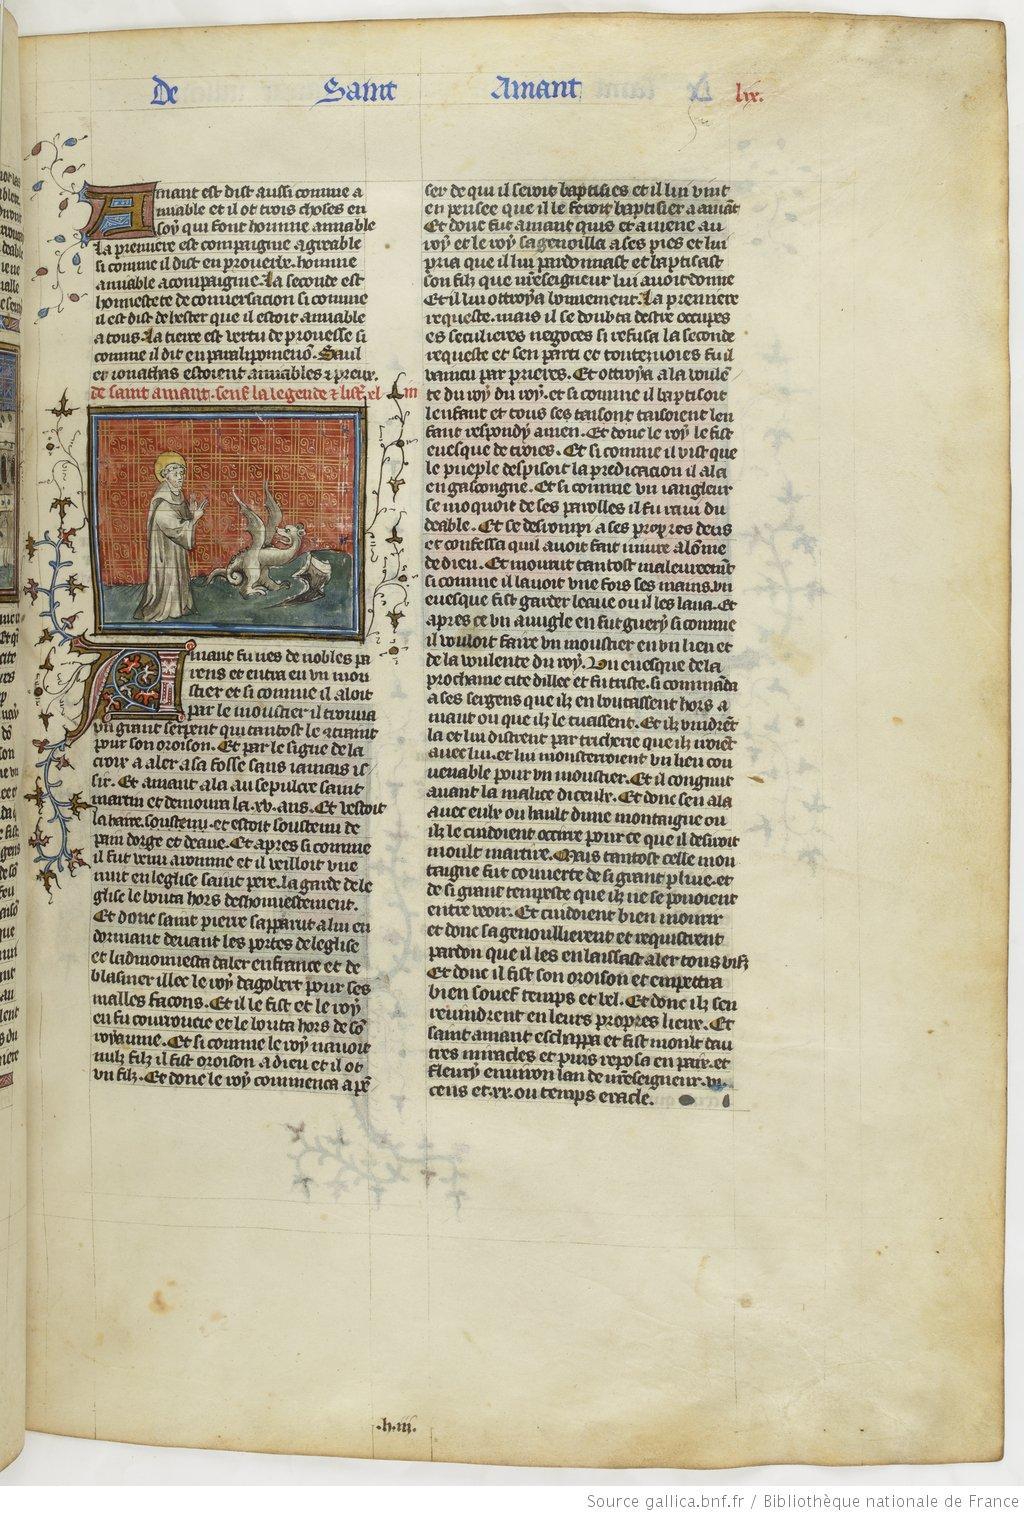 De Saint Amant lix.
Amant est dist aussi comme a
miable et il ot trois choses en
soy qui font homme amiable
la premiere est compaignie agreable
si comme il dist en prouerbe. homme
amiable a compaignie. La seconde est
honnestete de conuersacion si comme
il est dist de hester que il estoit amiable
a tous. La tierce est vertu de prouesse si
comme il dit en paralipomenō. Saul
et ionathas estoient amiables ⁊ preux.
de saint amant. sensᵗ la legende ⁊ histᵉ xl m
Amant fu nes de nobles pa
rens et entra en vn mou
stier et si comme il aloit
par le moustier il trouua
vn grant serpent qui tantost le ⁊ uaint
pour son oroison. Et par le signe de la
croix a aler a sa fosse sans iamais is
sir. Et amant ala au sepulcre saint
martin et demoura la .xv. ans. Et vestoit
la haire. soustenu. et estoit soustenu de
pain dorge et deaue. Et apres si comme
il fut venu a romme et il veilloit vne
nuit en leglise saint pere. la garde de le
glise le bouta hors deshonnestement.
Et donc saint pierre sapparut a lui en
dormant deuant les portes de leglise
et ladmonnesta daler en france et de
blasmer illec le roy dagobert pour ses
malles facons. Et il le fist et le roy
en fu courroucie et le bouta hors de sō
royaume. Et si comme le roy nauoit
nulz filz il fist oroison a dieu et il ot
vn filz. Et donc le roy commenca a pē
ser de qui il seroit baptisies et il lui vint
en pensee que il le feroit baptisier a amāt
Et donc fut amant quis et amene au
roy et le roy sagenoilla a ses pies et lui
pria que il lui pardonnast et baptisast
son filz que nrēseigneur lui auoit donne
Et il lui ottroya bonnement. La premiere
requeste. mais il se doubta destre occupes
es seculieres negoces si refusa la seconde
requeste et sen parti et toutesuoies fu il
vaincu par prieres. Et ottroya a la voulē
te du roy du roy. et si comme il baptisoit
lenfant et tous ses taisont taisoient len
fant respondy amen. Et donc le roy le fist
euesque de troies. Et si comme il vist que
le pueple despisoit la predicacion il ala
en gascongne. Et si comme vn iangleur
se moquoit de ses parolles il fu raui du
deable. Et se desrompi a ses propres dens
et confessa quil auoit fait iniure a lōme
de dieu. Et mourut tantost maleureemt̄
si comme il lauoit vne fois ses mains. vn
euesque fist garder leaue ou il les laua. Et
apres ce vn auugle en fut guery si comme
il vouloit faire vn moustier en vn lieu et
de la voulente du roy. Vn euesque de la
prochaine cite dillec et fu triste. si commāda
a ses sergens que ilz en boutassent hors a
mant ou que ilz le tuassent. Et ilz vindrēt
la et lui distrent par tricherie que ilz iroiēt
auec lui. et lui monsterroient vn lieu con
uenable pour vn moustier. Et il congnut
auant la malice diceulx. Et donc sen ala
auec eulx ou hault dune montaigne ou
ilz le cuidoient occirre pour ce que il desiroit
moult martire. Mais tantost celle mon
taigne fut couuerte de si grant pluie. et
de si grant tempeste que ilz ne se pouoient
entre veoir. Et cuidoient bien mourir
et donc sagenoullierent et requistrent
pardon que il les en laissast aler tous vifz
Et donc il fist son oroison et empettra
bien souef temps et bel. Et donc ilz sen
reuindrent en leurs propres lieux. Et
saint amant eschappa et fist moult dau
tres miracles et puis reposa en paix. et
fleury enuiron lan de nrēseigneur. vi.
cens et .xx. ou temps eracle.
.h.iii.
Source gallica.bnf.fr / Bibliothèque nationale de France